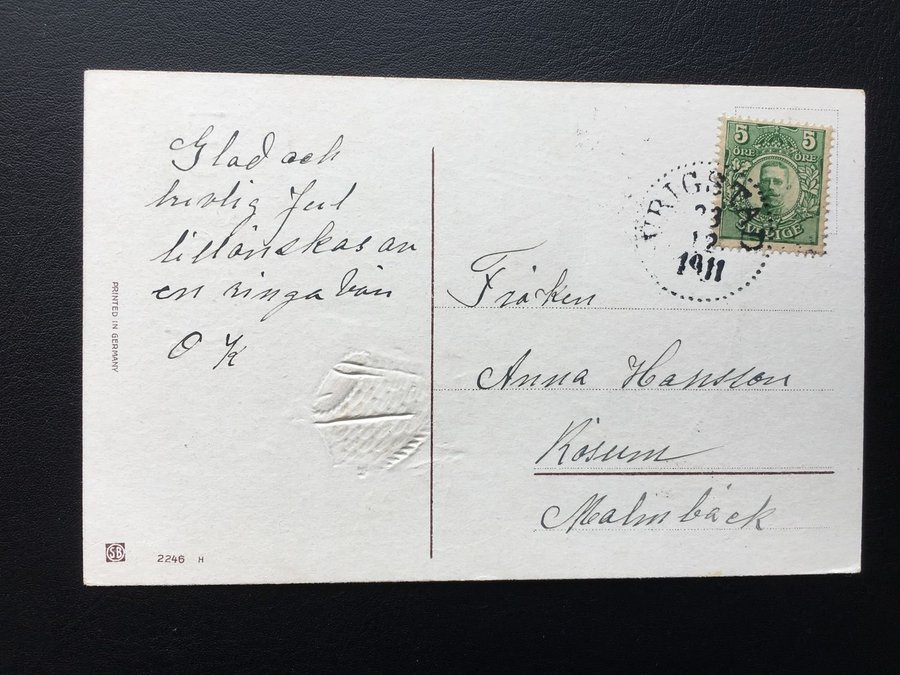 Glad och
trevlig Jul
tillönskas av
en ringa Vän
O K
PRINTED IN GERMANY
SB
2246 H
5 5
ÖRE ÖRE
SVERIGE
VRIGSTAD
23
12
1911
Fröken
Anna Hansson
Rösum
Malmbäck